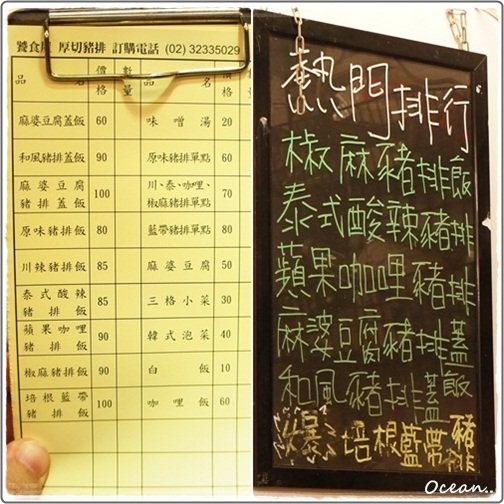 饕食屋 厚切豬排 訂購電話 (02) 32335029
品名 價格 數量 品名 價格
麻婆豆腐蓋飯 60 味噌湯 20
和風豬排蓋飯 90 原味豬排單點 60
麻婆豆腐
豬排蓋飯 100 川、泰、咖哩、
椒麻豬排單點 70
原味豬排飯 80 藍帶豬排單點 80
川辣豬排飯 85 麻婆豆腐 50
泰式酸辣
豬排飯 85 三格小菜 30
蘋果咖哩
豬排飯 90 韓式泡菜 40
椒麻豬排飯 90 白飯 10
培根藍帶
豬排飯 100 咖哩飯 60
熱門排行
椒麻豬排飯
泰式酸辣豬排
蘋果咖哩豬排
麻婆豆腐豬排蓋
和風豬排蓋飯
爆 培根藍帶豬排
Ocean.